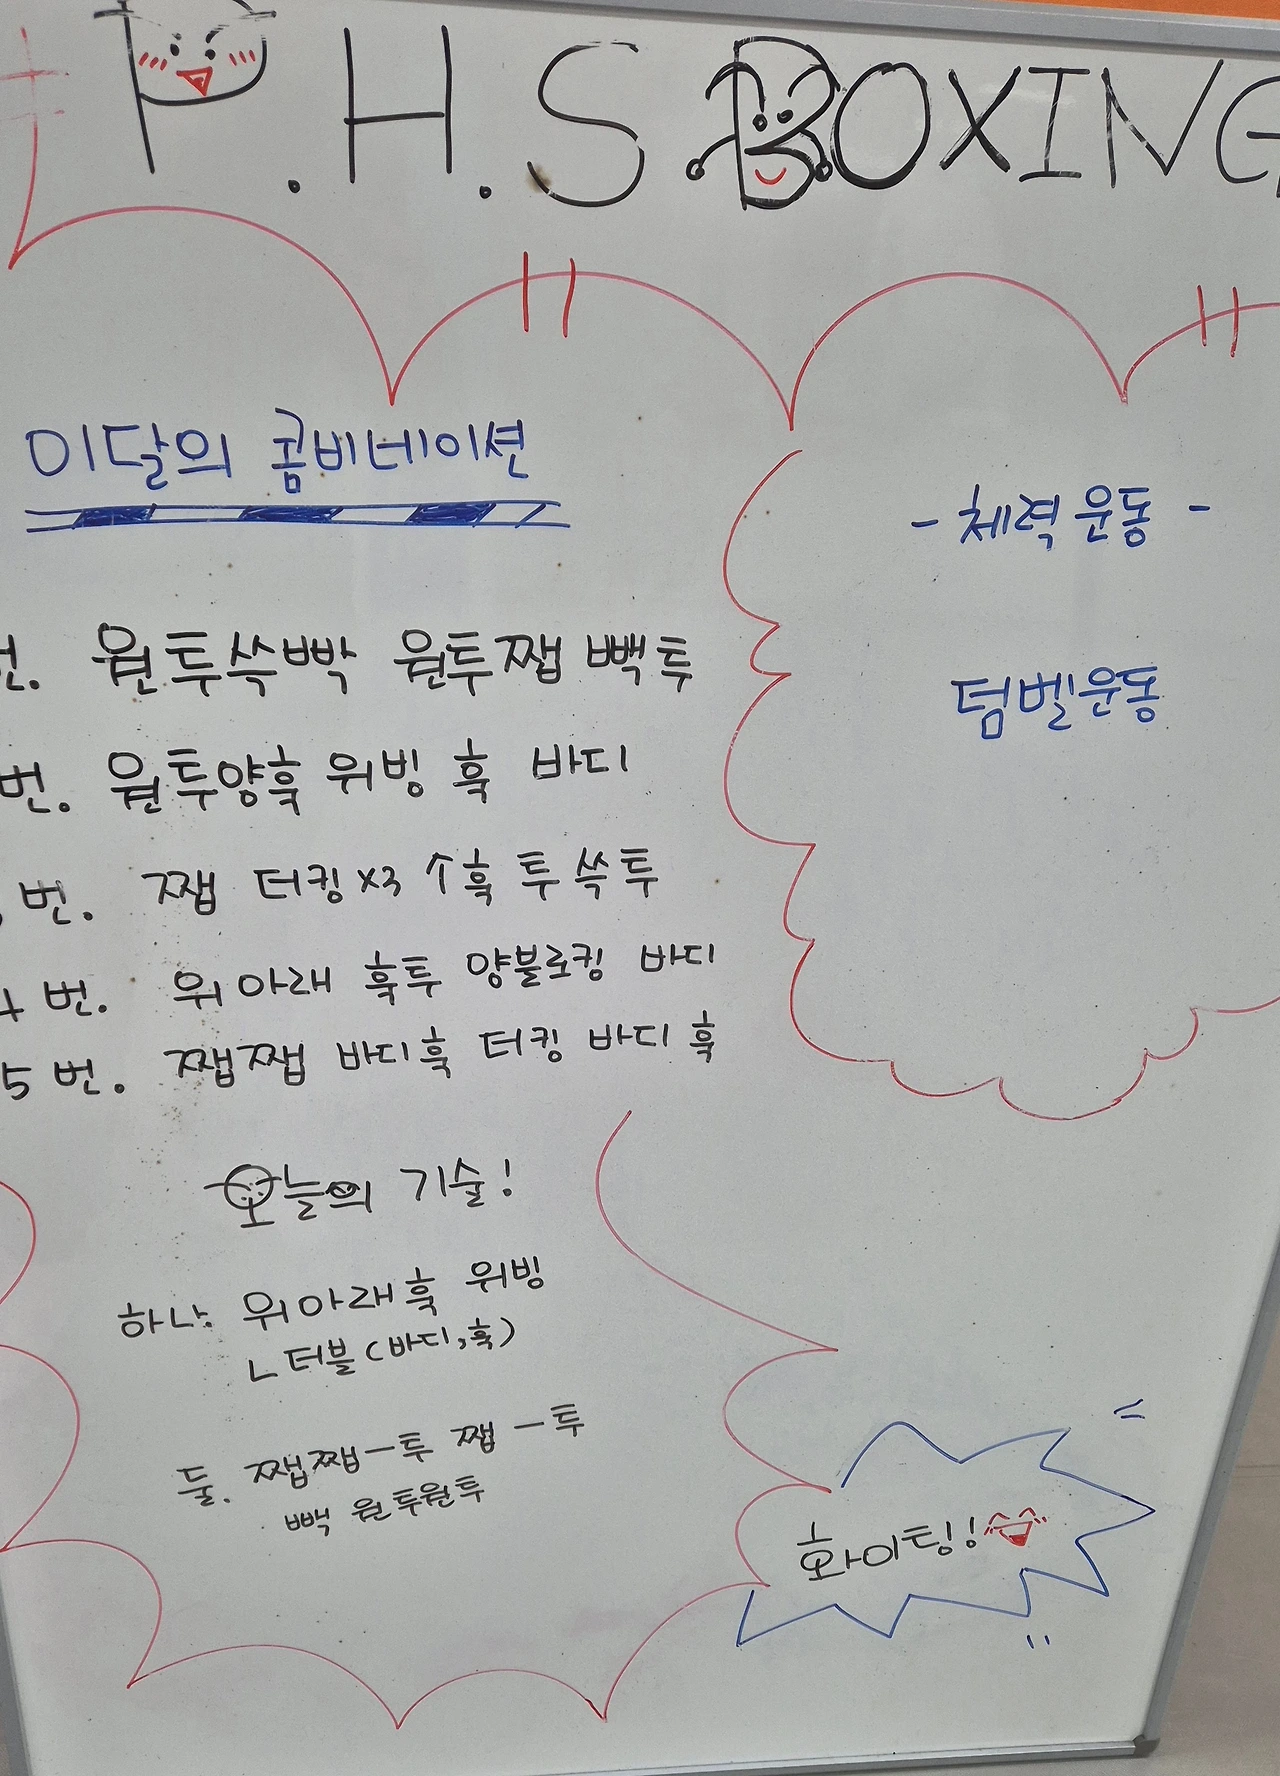 P.H.S BOXING
이달의 콤비네이션
번. 원투쓱빡 원투쨉 빽투
번. 원투양훅 위빙 훅 바디
번. 쨉 더킹 x3 ↑훅 투 쓱투
4번. 위 아래 훅투 양블로킹 바디
5번. 쨉쨉 바디훅 더킹 바디 훅
- 체력 운동 -
덤벨운동
오늘의 기술!
하나. 위아래훅 위빙
ㄴ더블(바디,훅)
둘. 쨉쨉ㅡ투 쨉 ㅡ투
빽 원투원투
화이팅!!